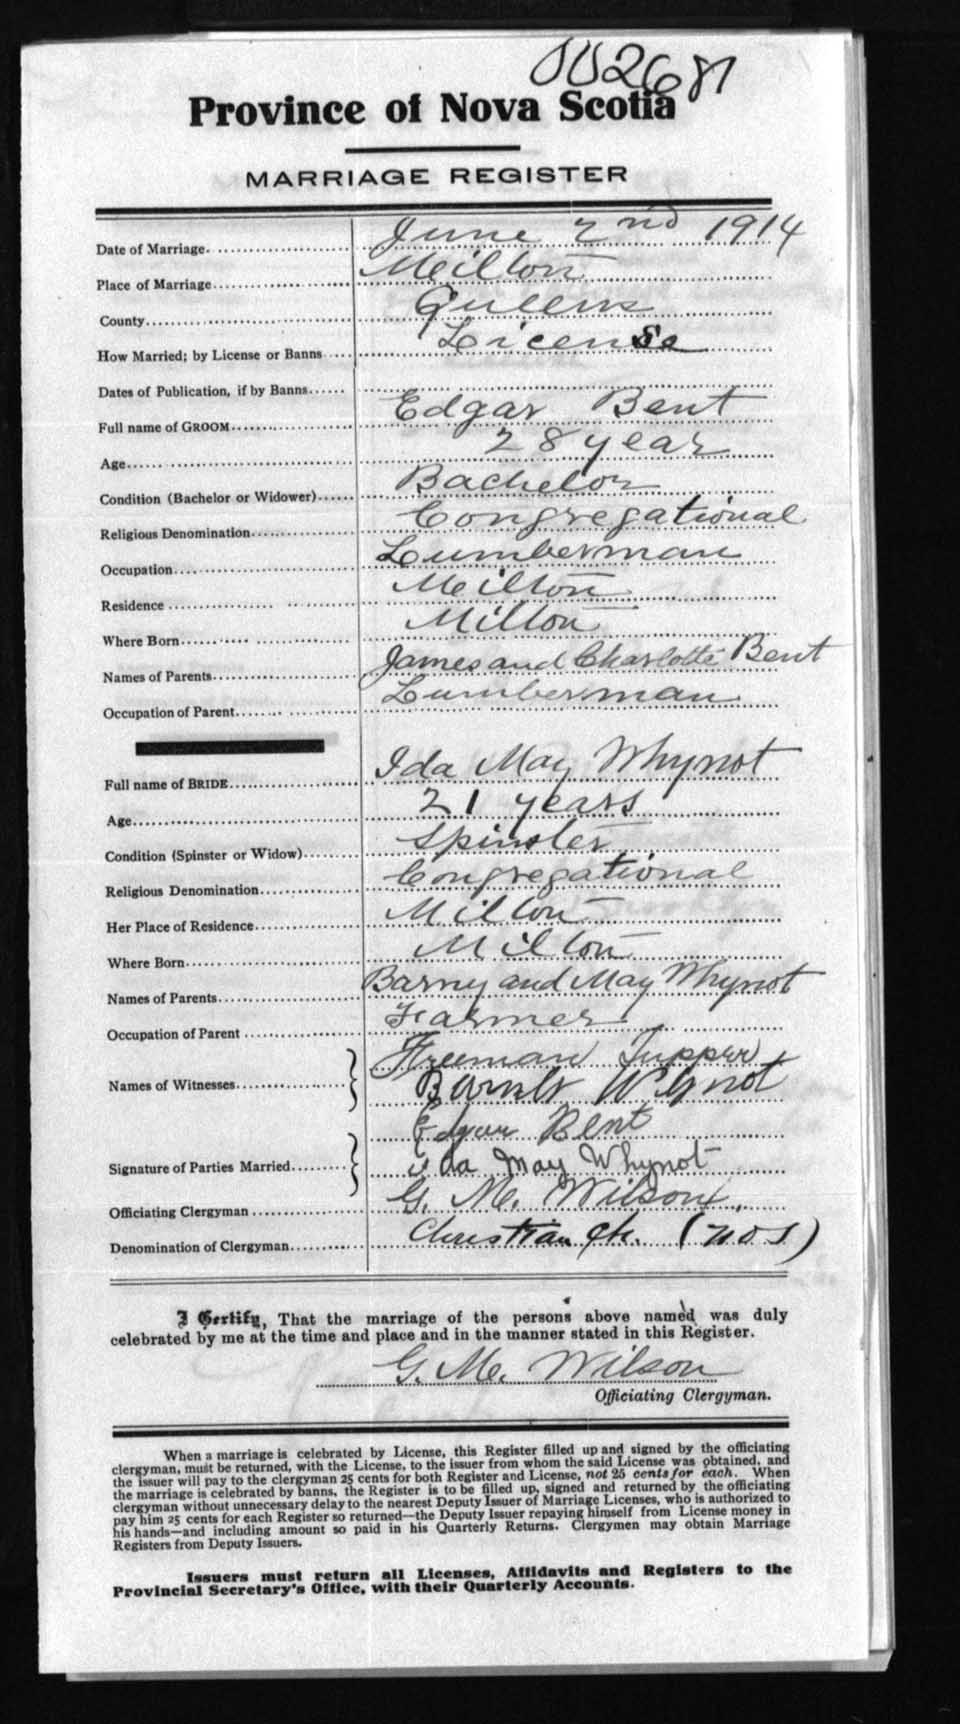 002687
Province of Nova Scotia
MARRIAGE REGISTER
Date of Marriage June 2nd 1914
Place of Marriage Milton
County Queens
How Married; by License or Banns License
Dates of Publication, if by Banns
Full name of GROOM Edgar Bent
Age 28 year
Condition (Bachelor or Widower) Bachelor
Religious Denomination Congregational
Occupation Lumberman
Residence Milton
Where Born Milton
Names of Parents James and Charlotte Bent
Occupation of Parent Lumberman
Full name of BRIDE Ida May Whynot
Age 21 years
Condition (Spinster or Widow) Spinster
Religious Denomination Congregational
Her Place of Residence Milton
Where Born Milton
Names of Parents Barny and May Whynot
Occupation of Parent Farmer
Names of Witnesses Freeman Tupper
Whynot
Edgar Bent
Signature of Parties Married Ida May Whynot
Officiating Clergyman G. M. Wilson
Denomination of Clergyman Christian Ch.
I Certify, That the marriage of the persons above named was duly
celebrated by me at the time and place and in the manner stated in this Register.
G. M. Wilson
Officiating Clergyman.
When a marriage is celebrated by License, this Register filled up and signed by the officiating
clergyman, must be returned, with the License, to the issuer from whom the said License was obtained, and
the issuer will pay to the clergyman 25 cents for both Register and License, not 25 cents for each. When
the marriage is celebrated by banns, the Register is to be filled up, signed and returned by the officiating
clergyman without unnecessary delay to the nearest Deputy Issuer of Marriage Licenses, who is authorized to
pay him 25 cents for each Register so returned—the Deputy Issuer repaying himself from License money in
his hands—and including amount so paid in his Quarterly Returns. Clergymen may obtain Marriage
Registers from Deputy Issuers.
Issuers must return all Licenses, Affidavits and Registers to the
Provincial Secretary's Office, with their Quarterly Accounts.